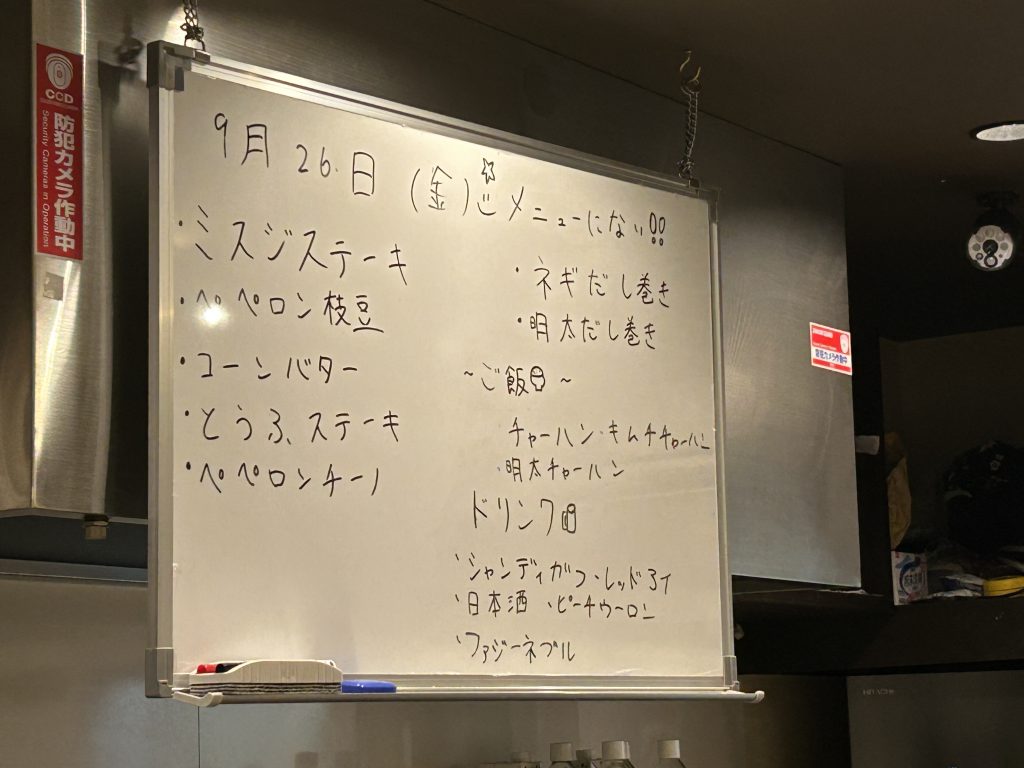 CCD
防犯カメラ作動中
Security Cameras in Operation
9月26.日(金)メニューにない!!
・ミスジステーキ
・ペペロン枝豆
・コーンバター
・とうふステーキ
・ペペロンチーノ
・ネギだし巻き
・明太だし巻き
~ご飯~
チャーハン・キムチチャーハン
・明太チャーハン
ドリンク
・シャンディガフ・レッドアイ
・日本酒・ピーチウーロン
・ファジーネーブル
防犯カメラ作動中
HITACHI